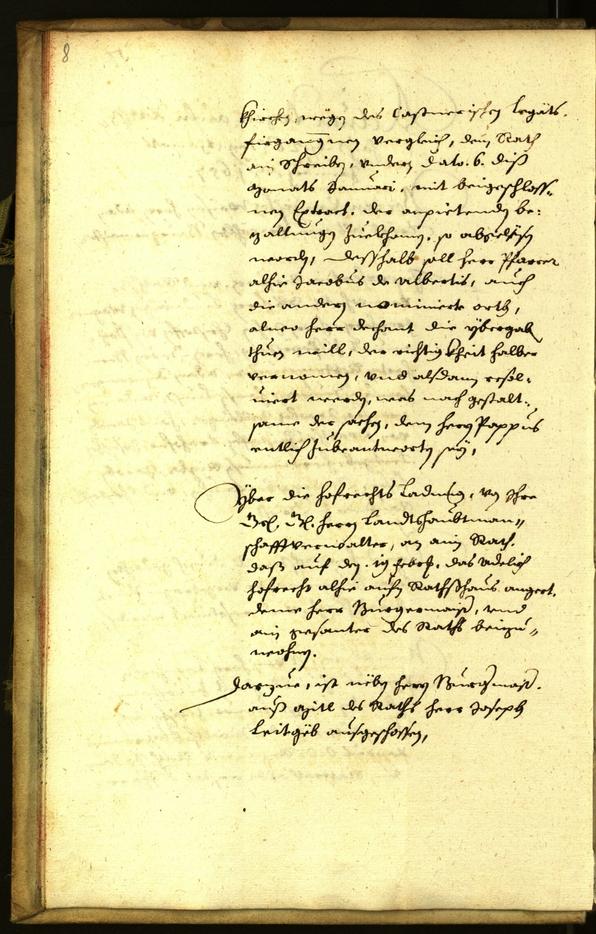 8
Khirchen, wegen des Castnerischen legats.
firgangnen vergleich, dem Rath
ain Schreiben, undern dato. 6. diß
Monats Januari, mit beigeschloss-
nen Extract, der anpietenden be-
zallung zuekhomen, so abgelesen
worden, desshalb soll herr Pfarrer
alhie Jacobus de Albertis, auch
die andern nominierte orth,
alweo herr dechant die ybergab
thuen will, der richtigkheit halber
vernomen, und alsdann resol-
viert werden, was nach gestalt-
same der sachen, dem herrn Pappus
entlich zubeantworten sey,
Yber die hofrechts Ladung, von Ihre
herrn Landtshaubtman-
schafftverwalter, an ain Rath.
daß auf den. 19 Febr. das Adelich
hofrecht alhie aufm Rathsshaus angeet,
deme herr Burgermaister, und
ain gesanter des Raths beizu-
wohnen.
Darzue, ist neben herrn Burgermaister.
auß mitl des Raths herr Joseph
Leitgeb ausgeschossen,